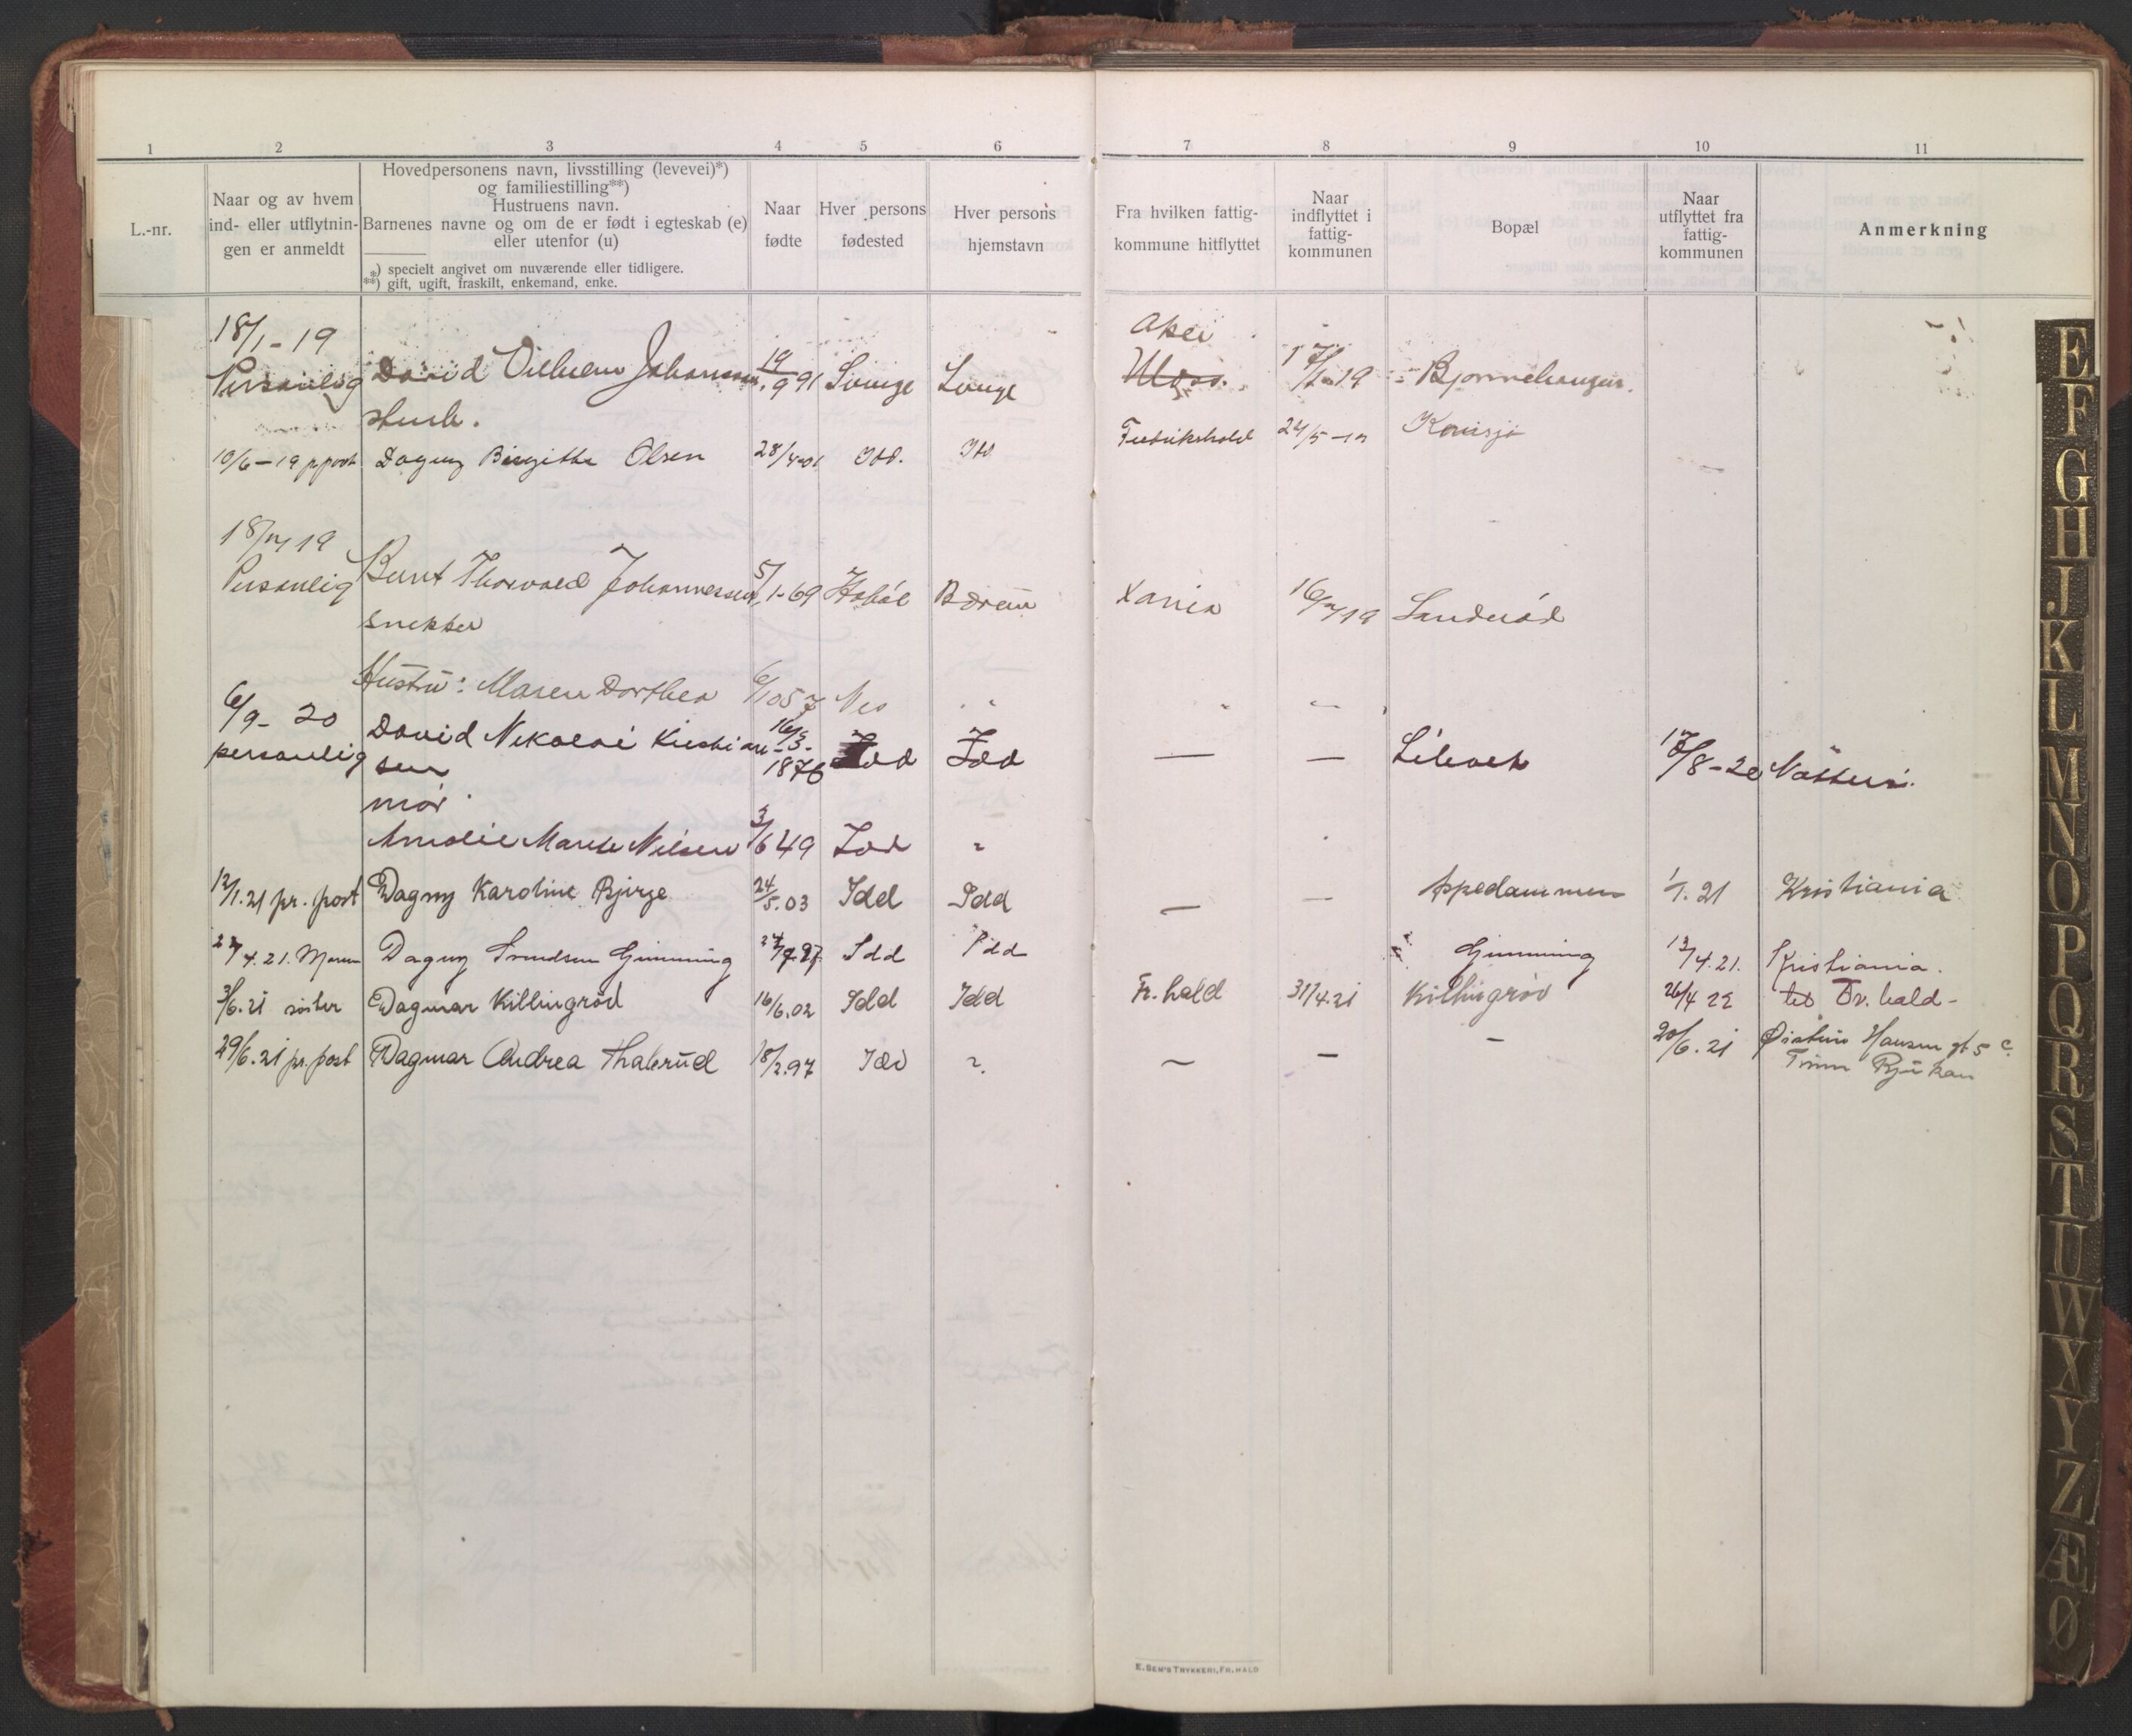 1 2 3 4 5 6 7 8 9 10 11
L.-nr.
Naar og av hvem
ind- eller utflytnin-
gen er anmeldt
Hovedpersonens navn, livsstilling (levevei)*)
og familiestilling**)
Hustruens navn.
Barnenes navne og om de er født i egteskab (e)
eller utenfor (u)
*) specielt angivet om nuværende eller tidligere.
**) gift, ugift, fraskilt, enkemand, enke.
Naar
fødte
Hver persons
fødested
Hver persons
hjemstavn
Fra hvilken fattig-
kommune hitflyttet
Naar
indflyttet i
fattig-
kommunen
Bopæl
Naar
utflyttet fra
fattig-
kommunen
Anmerkning
18/1-19 Aker
Personlig David Vilhelm Johansen 19/9 91 Svinge Moss.
10/6-19 p post Dagny Birgitte Olsen 28/4-01 Idd. Idd Fredrikshald 24/5-19 Kornsjø
18/7 19
Personlig Bernt Thorvald Johannessen 5/1-69 Hobøl Bærum Xania 16/7 19 Sanderød
snekker
Hustru: Maren Dorthea Nes
6/9-20 David Nikolai Kristian- 16/3-
personlig sen 1876 Idd Idd — — 17/8-20 Nøtterø.
mor
Amalie Marie Nilsen 3/6 49 Idd
12/1.21 pr. post Dagny Karoline Bjørge 24/5.03 Idd Idd — — Aspedammen 1/1.21 Kristiania
22/4.21. Moren Dagny Svendsen Gimming Idd Idd Gimming 12/4.21. Kristiania.
3/6.21 søster Dagmar Killingrød 16/6.02 Idd Idd Fr.hald 31/4.21 Killingrød 26/4 22 til Fr.hald-
29/6.21 pr. post Dagmar Andrea Thalerud 18/2.97 Idd — — — 20/6.21 Øistein Hansen gt 5 c.
Tinn Rjukan
E. SEM'S TRYKKERI, FR.HALD
E
F
G
H
J
K
L
M
N
O
P
Q
R
S
T
U
W
X
Y
Z
Æ
Ø